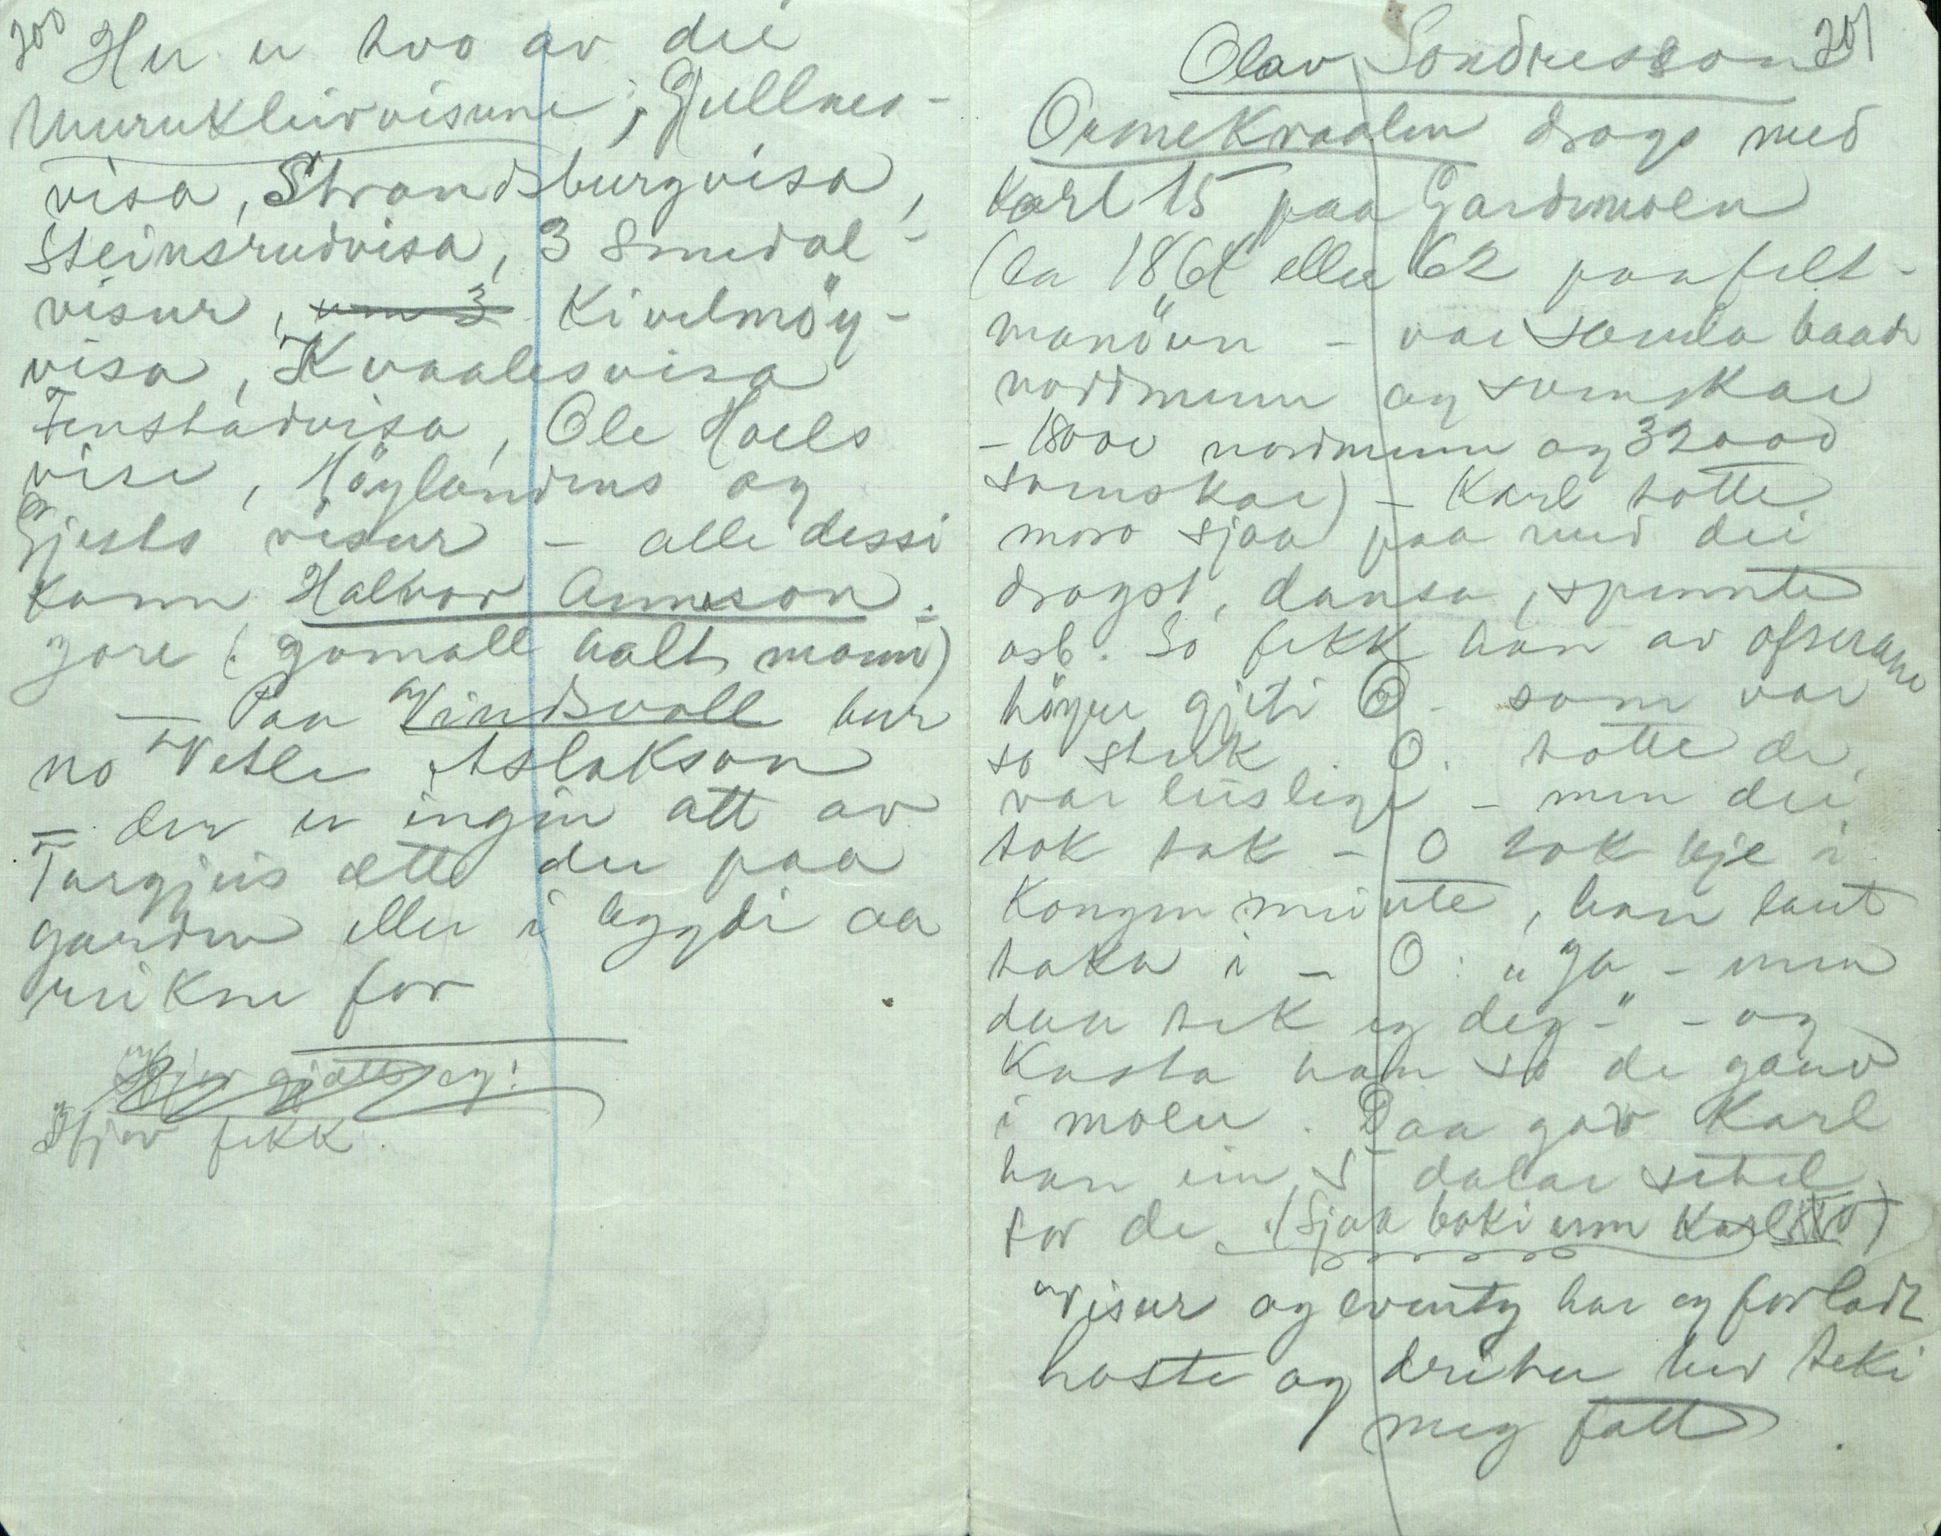 200
Her er tvo av dei
Murukleivvisune, Gullnes-
visa, Strandsburgvisa,
Steinsrudvisa, 3 Smedal-
visur, um 3 Kivelmöy-
visa, Kvaalesvisa
Fenstadvisa, Ole Hæls
vise, Höylandens og
Gjests visur – alle dessi
kann Halvor Anneson.
gore (: gamall halt mann)
– Paa Vindsvoll bur
no Vetle Aslakson
– der er ingin att av
Targjeis ætt der paa
garden eller i bygdi aa
reikne for
gjætte eg!
fekk.
201
Olav Sondresson
Ormekvaalen drogs med
Karl 15 paa Gardemoen
(ca 1861 eller 62 paa felt-
manövern – var samla baade
nordmenn og svenskar
– 18000 nordmenn og 32000
svenskar) – Karl totte
moro sjaa paa med dei
drogst, dansa, spennte
osb. So fekk han av ofserane
höyre gjeti O. som var
so sterk. O. totte de
var leislege – men dei
tok tak – O tok kje i
Kongen mi ute, han laut
taka i – O: "Ja – men
daa tek eg deg –" – og
kasta han so de gauv
i moen. Daa gav Karl
han ein 5 dalar setel
for de. (Sjaa boki um Karl XV)
Visur og eventy har eg forladt
hoste og driter hev teki
meg fatt.